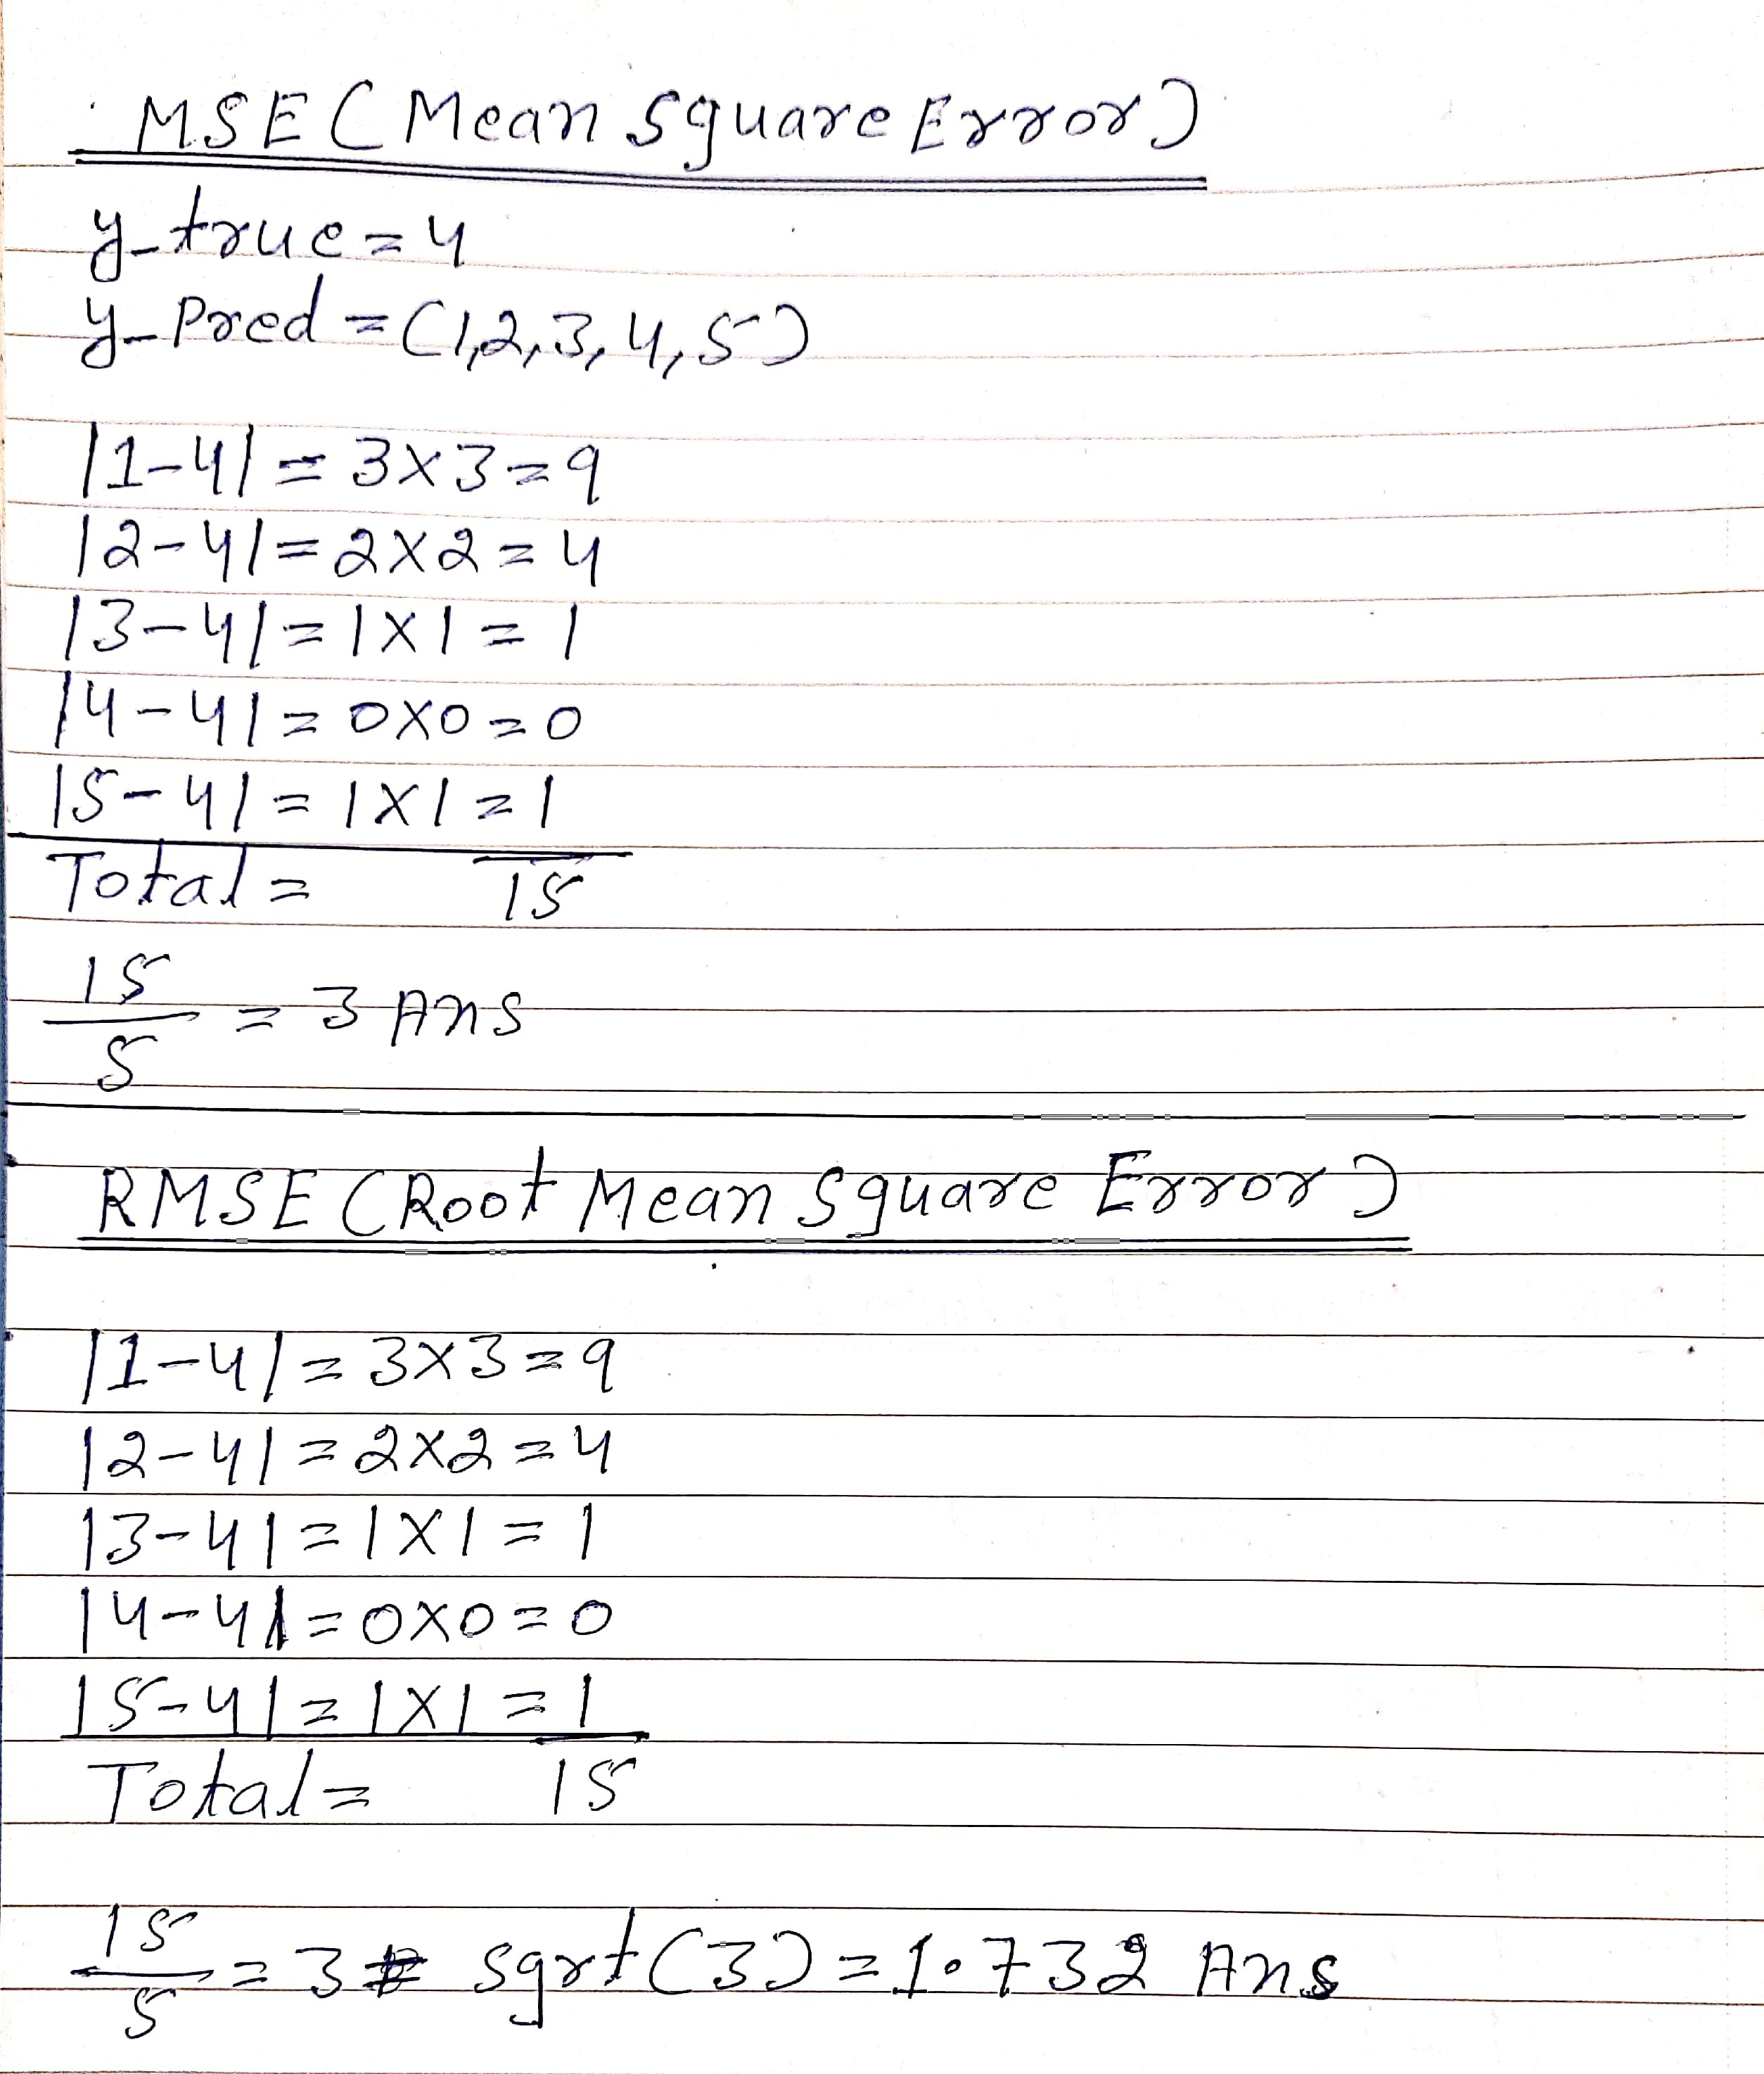 MSE (Mean Square Error)
y_true = 4
y_Pred = (1,2,3,4,5)
|1-4| = 3×3 = 9
|2-4| = 2×2 = 4
|3-4| = 1×1 = 1
|4-4| = 0×0 = 0
|5-4| = 1×1 = 1
Total = 15
15/5 = 3 Ans
RMSE (Root Mean Square Error)
|1-4| = 3×3 = 9
|2-4| = 2×2 = 4
|3-4| = 1×1 = 1
|4-4| = 0×0 = 0
|5-4| = 1×1 = 1
Total = 15
15/5 = 3 sqrt(3) = 1.732 Ans